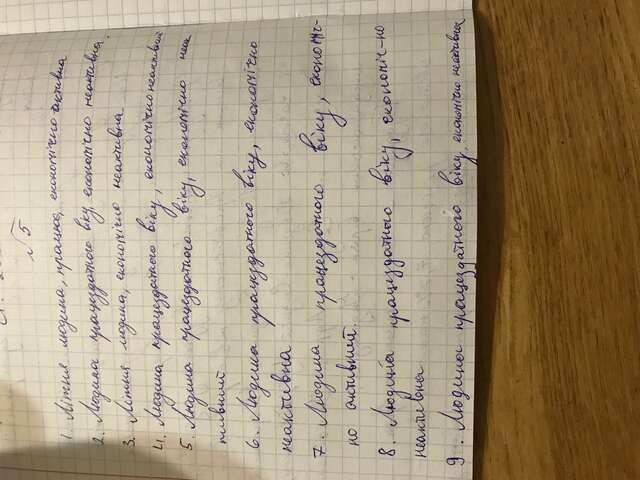 №5
1. Літня людина, працює, економічно активна
2. Людина працездатного віку, економічно неактивна.
3. Літня людина, економічно неактивна.
4. Людина працездатного віку, економічно неактивний
5. Людина працездатного віку, економічно неак
тивний
6. Людина працездатного віку, економічно
неактивна
7. Людина працездатного віку, економіч-
но активний.
8. Людина працездатного віку, економіч-но
неактивна
9. Людина працездатного віку, економічно неактивна